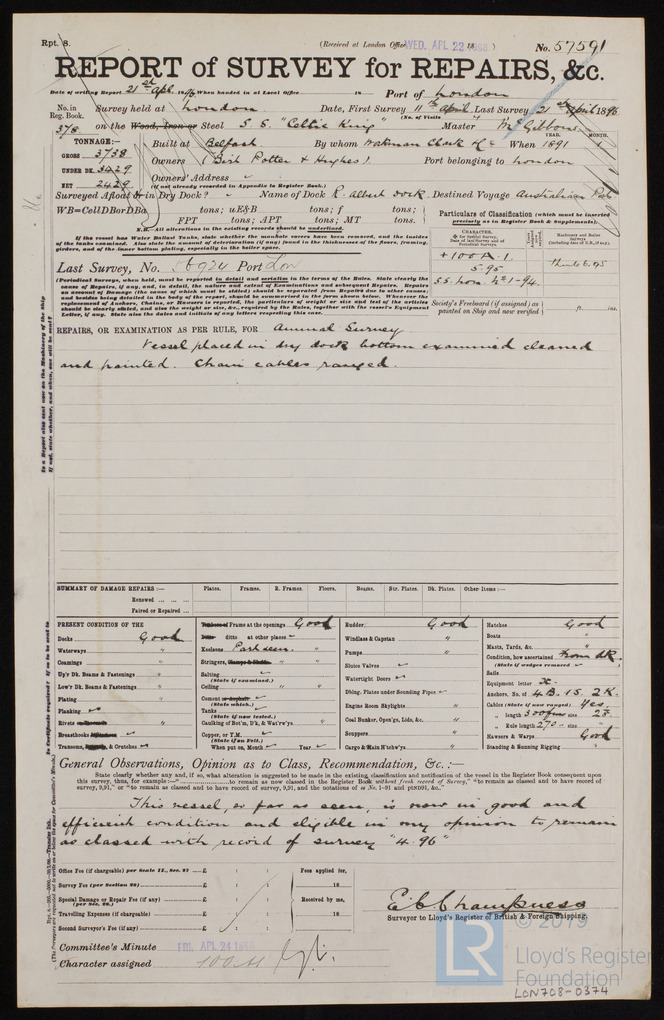 Rpt. 8.
(Received at London Office WED. APL 22 1896 18 )
No. 57591
REPORT of SURVEY for REPAIRS, &c.
Date of writing Report 21st Apl. 1896 When handed in at Local Office 18 Port of London
No. in Reg. Book. Survey held at London Date, First Survey 11th April Last Survey 21st April 1896
(No. of Visits
378 on the Wood, Iron or Steel S. S. "Celtic King" Master McGibbon
TONNAGE:— Built at Belfast By whom Workman Clark & Co When 1891
YEAR. MONTH.
GROSS 3738 Owners (Bird Potter & Hughes) Port belonging to London
UNDER DK. 3429 Owners' Address
NET 2429 (if not already recorded in Appendix to Register Book.)
Surveyed Afloat or in Dry Dock? Name of Dock R. Albert Dock. Destined Voyage Australian
WB=CellDBorDBa tons; uE&B tons; f tons;
FPT tons; APT tons; MT tons.
N.B.—All alterations in the existing records should be underlined.
If the vessel has Water Ballast Tanks, state whether the manhole covers have been removed, and the insides
of the tanks examined. Also state the amount of deterioration (if any) found in the thicknesses of the floors, framing,
girders, and of the inner bottom plating, especially in the boiler space.
Particulars of Classification (which must be inserted
precisely as in Register Book & Supplements).
CHARACTER.
+ 100 A.1.
5.95
S.S. Lon. No 1-94.
Last Survey, No. Port Lon
(Periodical Surveys, when held, must be reported in detail and seriatim in the terms of the Rules. State clearly the
cause of Repairs, if any, and, in detail, the nature and extent of Examinations and subsequent Repairs. Repairs
on account of Damage (the cause of which must be stated) should be separated from Repairs due to other causes;
and besides being detailed in the body of the report, should be summarized in the form shown below. Whenever the
replacement of Anchors, Chains, or Hawsers is reported, the particulars of weight or size and test of the articles
should be clearly stated, and also the weight or size, &c., required by the Rules, together with the vessel's Equipment
Letter, if any. State also the dates and initials of any letters respecting this case.
Society's Freeboard (if assigned) as
painted on Ship and now verified ft. ins.
REPAIRS, OR EXAMINATION AS PER RULE, FOR Annual Survey
Vessel placed in dry dock bottom examined cleaned
and painted. Chain cables ranged.
SUMMARY OF DAMAGE REPAIRS :— Plates. Frames. R. Frames. Floors. Beams. Str. Plates. Dk. Plates. Other Items:—
Renewed ... ... ...
Faired or Repaired ...
PRESENT CONDITION OF THE
Decks Good
Waterways "
Coamings "
Up'r Dk. Beams & Fastenings "
Low'r Dk. Beams & Fastenings "
Plating "
Planking
Rivets "
Breasthooks
Transoms, & Crutches
Frame at the openings Good
Ditto ditto at other places
Keelsons Part seen. "
Stringers, "
Salting
(State if examined.)
Ceiling "
Cement
(State which.)
Tanks
(State if now tested.)
Caulking of Bot'm, D'k, & Wat'rw'ys "
Copper, or Y.M.
(State if on Felt.)
When put on, Month Year
Rudder Good
Windlass & Capstan "
Pumps "
Sluice Valves
Watertight Doors
Dblng. Plates under Sounding Pipes
Engine Room Skylights "
Coal Bunker, Open'gs, Lids, &c. "
Scuppers "
Cargo & Main H'tchw'ys "
Hatches Good
Boats "
Masts, Yards, &c. "
Condition, how ascertained From dk.
(State if wedges removed)
Sails
Equipment letter
Anchors, No. of 4 B. 1 S. 2 K.
Cables (State if now ranged) Yes.
" length 300 fms size
" Rule length 270 size
Hawsers & Warps Good
Standing & Running Rigging "
General Observations, Opinion as to Class, Recommendation, &c.:—
State clearly whether any, and if so, what alteration is suggested to be made in the existing classification and notification of the vessel in the Register Book consequent upon
this survey, thus, for example:—" to remain as now classed in the Register Book without fresh record of Survey," "to remain as classed and to have record of
survey, 9,91," or "to remain as classed and to have record of survey, 9,91, and the notations of ss No. 1-91 and ptND91, &c."
This vessel, so far as seen, is now in good and
efficient condition and eligible in my opinion to remain
as classed with record of survey "4.96"
Office Fee (if chargeable) per Scale II., Sec. 27 £ : :
Survey Fee (per Section 28) £ : :
Special Damage or Repair Fee (if any) £ : :
(per Sec. 28.)
Travelling Expenses (if chargeable) £ : :
Second Surveyor's Fee (if any) £ : :
Fees applied for,
18
Received by me,
18
E. C. Champness
Surveyor to Lloyd's Register of British & Foreign Shipping.
Committee's Minute FRI. APL 24 1896
Character assigned 100 A1
© 2019
LR
Lloyd's Register
Foundation
LON708-0374